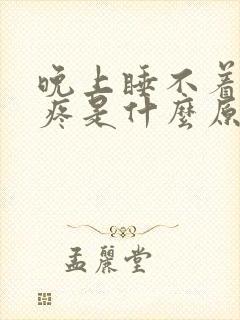 晚上睡不着
疼是什麼原
孟麗堂